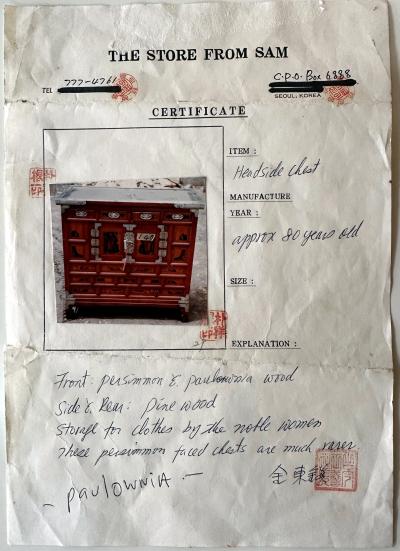 THE STORE FROM SAM
TEL 777-4761
C.P.O. Box 6888
SEOUL, KOREA
CERTIFICATE
ITEM :
Headside chest
MANUFACTURE
YEAR :
approx 80 years old
SIZE :
EXPLANATION :
Front: persimmon & paulownia wood
Side & Rear: Pine wood
Storage for clothes by the noble women
These persimmon faced chests are much rarer
金東
- paulownia -